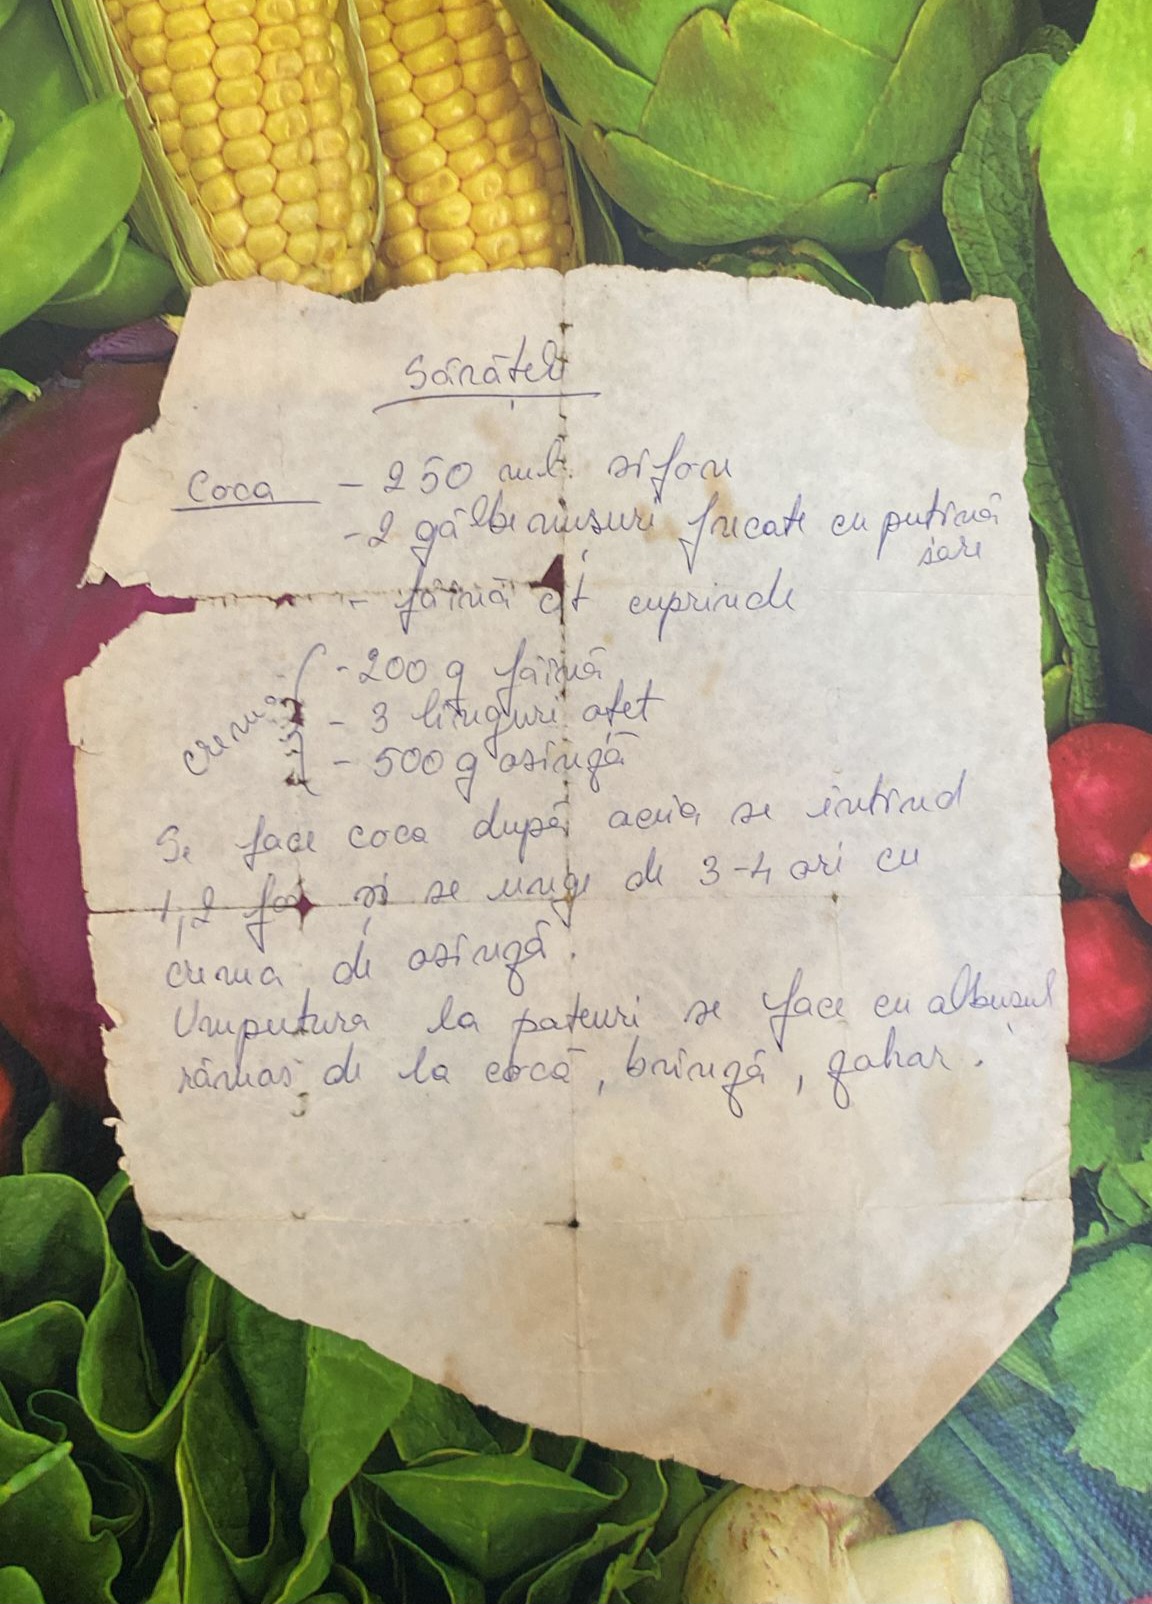 Sărățele
Coca - 250 ml. sifon
- 2 gălbenușuri frecate cu puțină
sare
- făină cît cuprinde
crema
- 200 g făină
- 3 linguri oțet
- 500 g osînză
Se face coca după aceia se întind
1,2 foi și se unge de 3-4 ori cu
crema de osînză.
Umputura la pateuri se face cu albușul
rămas de la cocă, brînză, zahar.